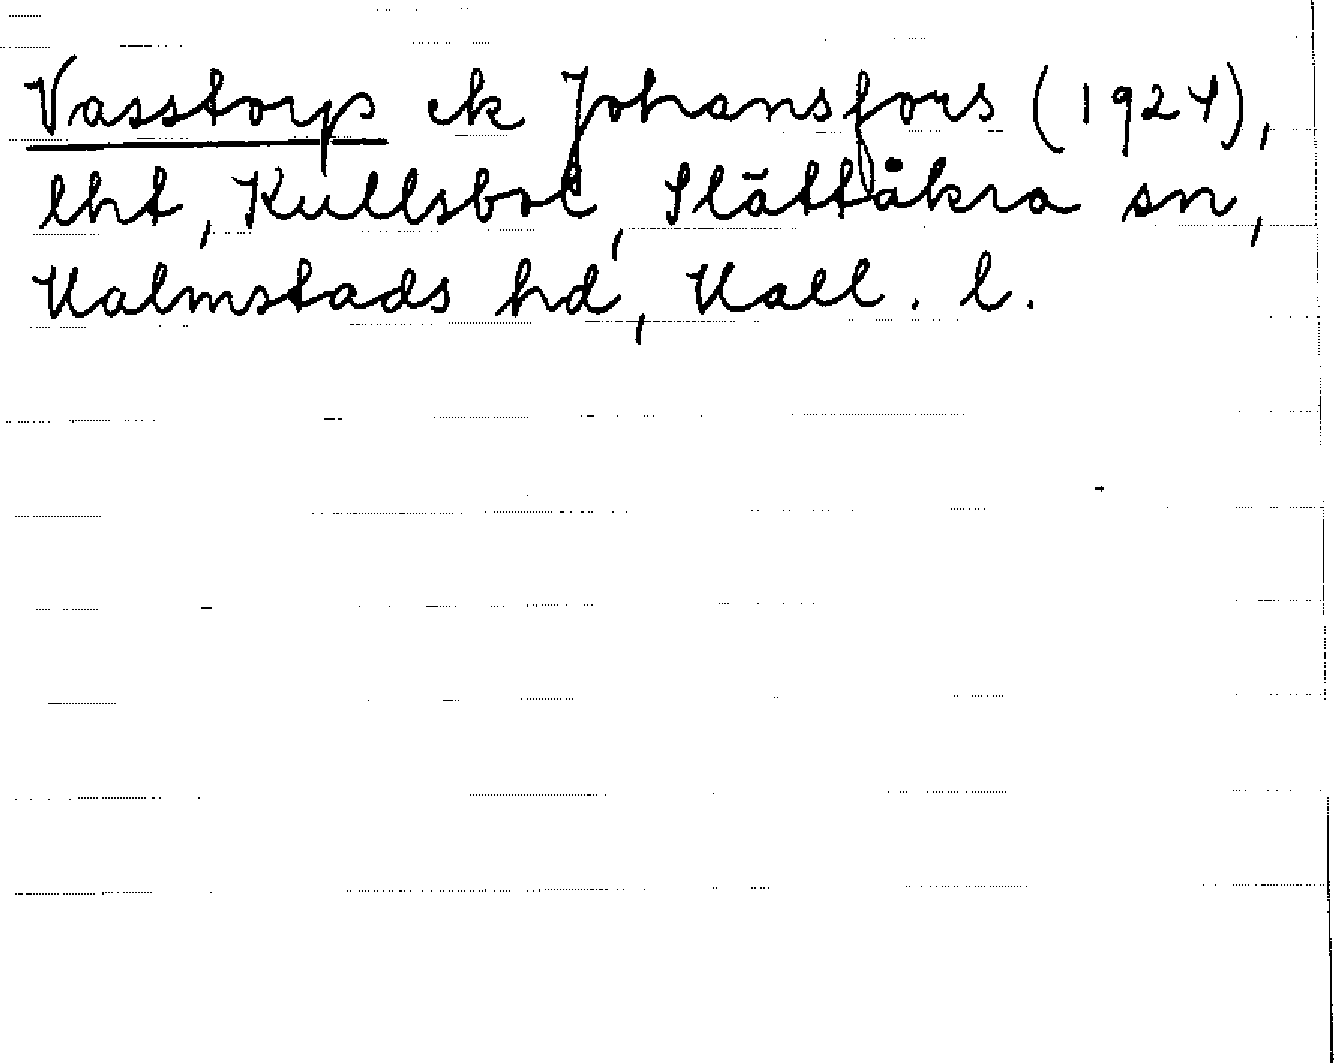 Vasstorp ek Johansfors (1924),
lht, Kullsbol, Slättåkra sn,
Halmstads hd, Hall. l.